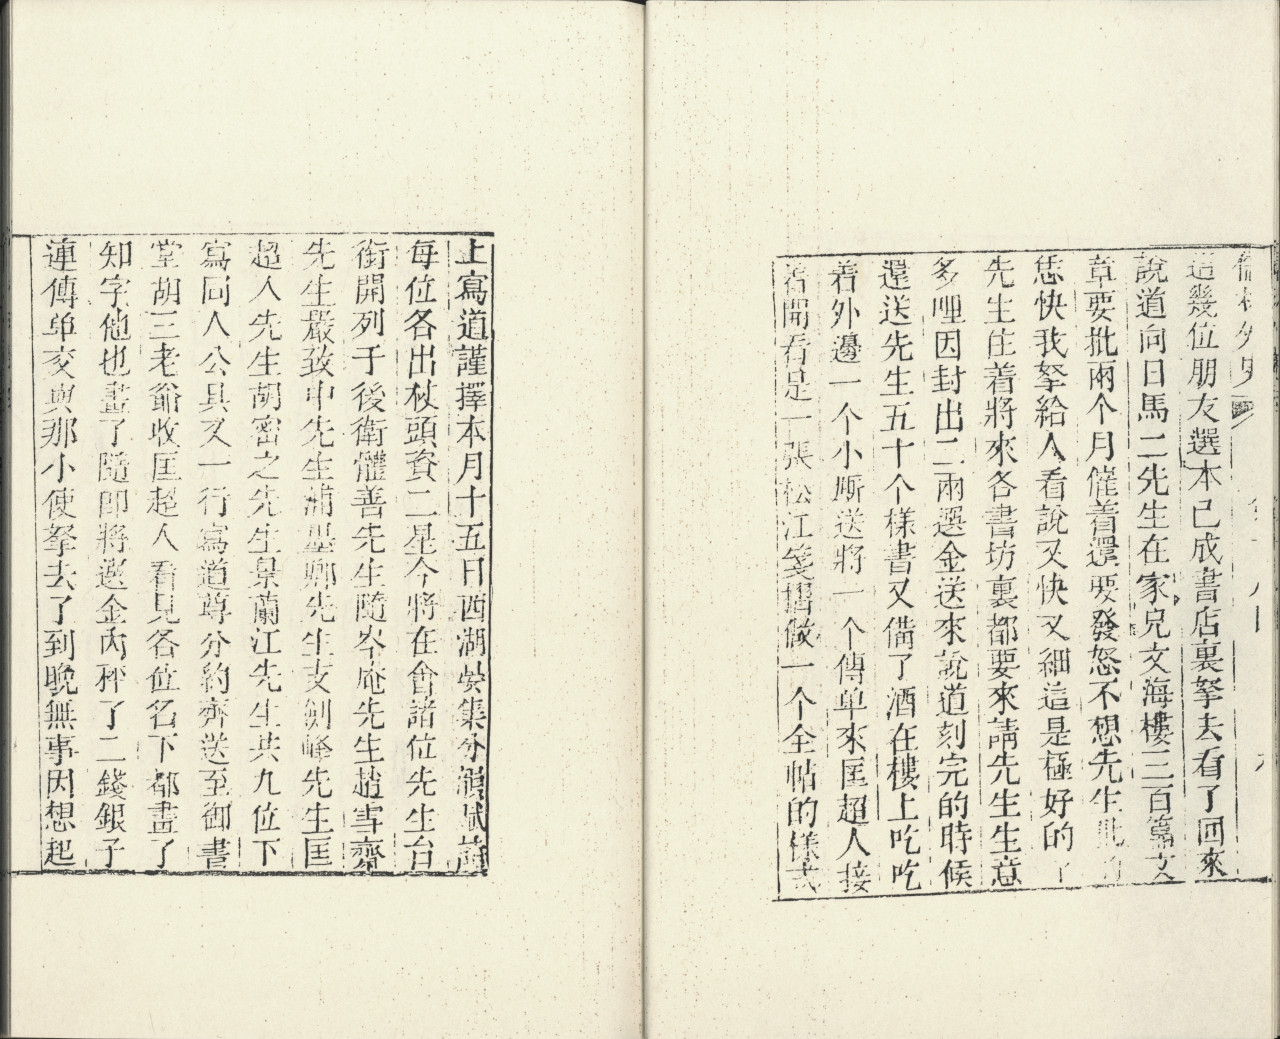 儒林外史 第十八回
這幾位朋友選本已成書店裏拏去看了回來
說道向日馬二先生在家兄文海樓三百篇文
章要批兩个月催着還要發怒不想先生批
恁快我拏給人看說又快又細這是極好的了
先生住着將來各書坊裏都要來請先生生意
多哩因封出二兩選金送來說道刻完的時候
還送先生五十个樣書又備了酒在樓上吃吃
着外邊一个小厮送將一个傳单來匡超人接
着開看是一張松江箋摺做一个全帖的樣式
上寫道謹擇本月十五日西湖宴集分韻賦詩
每位各出杖頭資二星今將在會諸位先生台
銜開列于後衛體善先生隨岑庵先生趙雪齋
先生嚴致中先生浦墨卿先生支劍峰先生匡
超人先生胡密之先生景蘭江先生共九位下
寫同人公具又一行寫道尊分約齊送至御書
堂胡三老爺收匡超人看見各位名下都畫了
知字他也畫了隨即將選金內秤了二錢銀子
連傳单交與那小使拏去了到晚無事因想起